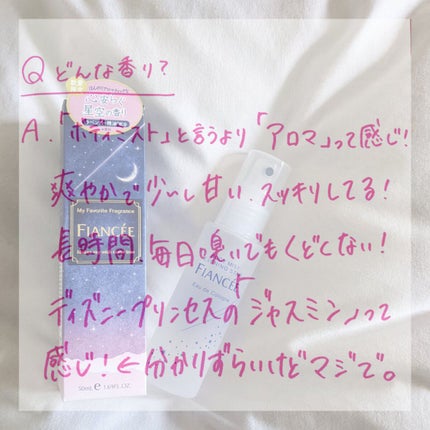 Qどんな香り?
A.「ボディミスト」と言うより「アロマ」って感じ!
爽やかで少〜し甘い、スッキリしてる!
長時間毎日嗅いでもくどくない!
ディズニープリンセスの「ジャスミン」って
感じ!←分かりずらいけどマジで。
心安らぐ
星空の香り
My Favorite Fragrance
FIANCÉE
FIANCÉE
Eau de Cologne
50mL e 1.69FL.OZ.